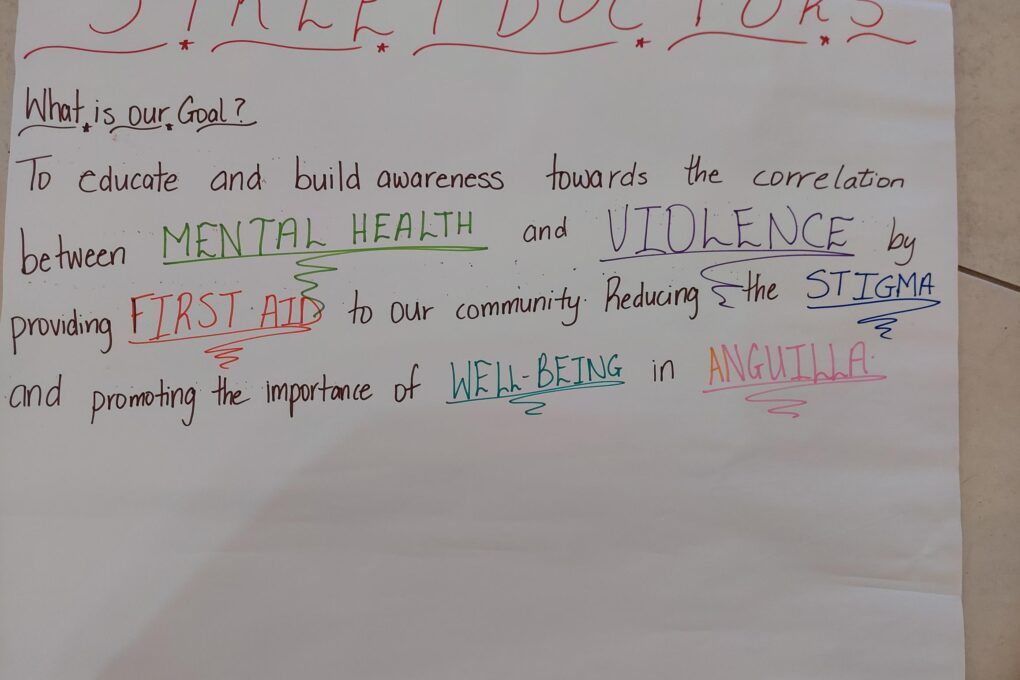 STREET DOCTORS
What is our Goal?
To educate and build awareness towards the correlation
between MENTAL HEALTH and VIOLENCE by
providing FIRST AID to our community. Reducing the STIGMA
and promoting the importance of WELL-BEING in ANGUILLA.